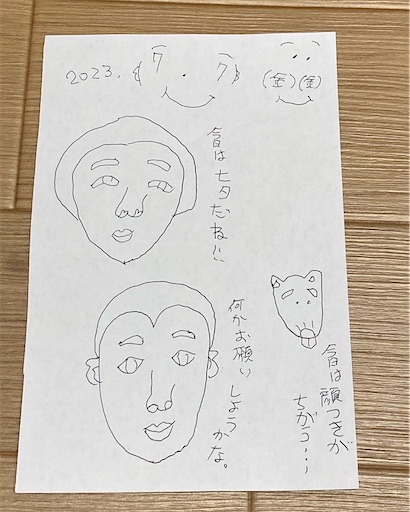 2023. 7 7 (金)(金)
今日は七夕だね!!
何かお願いしようかな。
今日は顔つきが
ちがう…